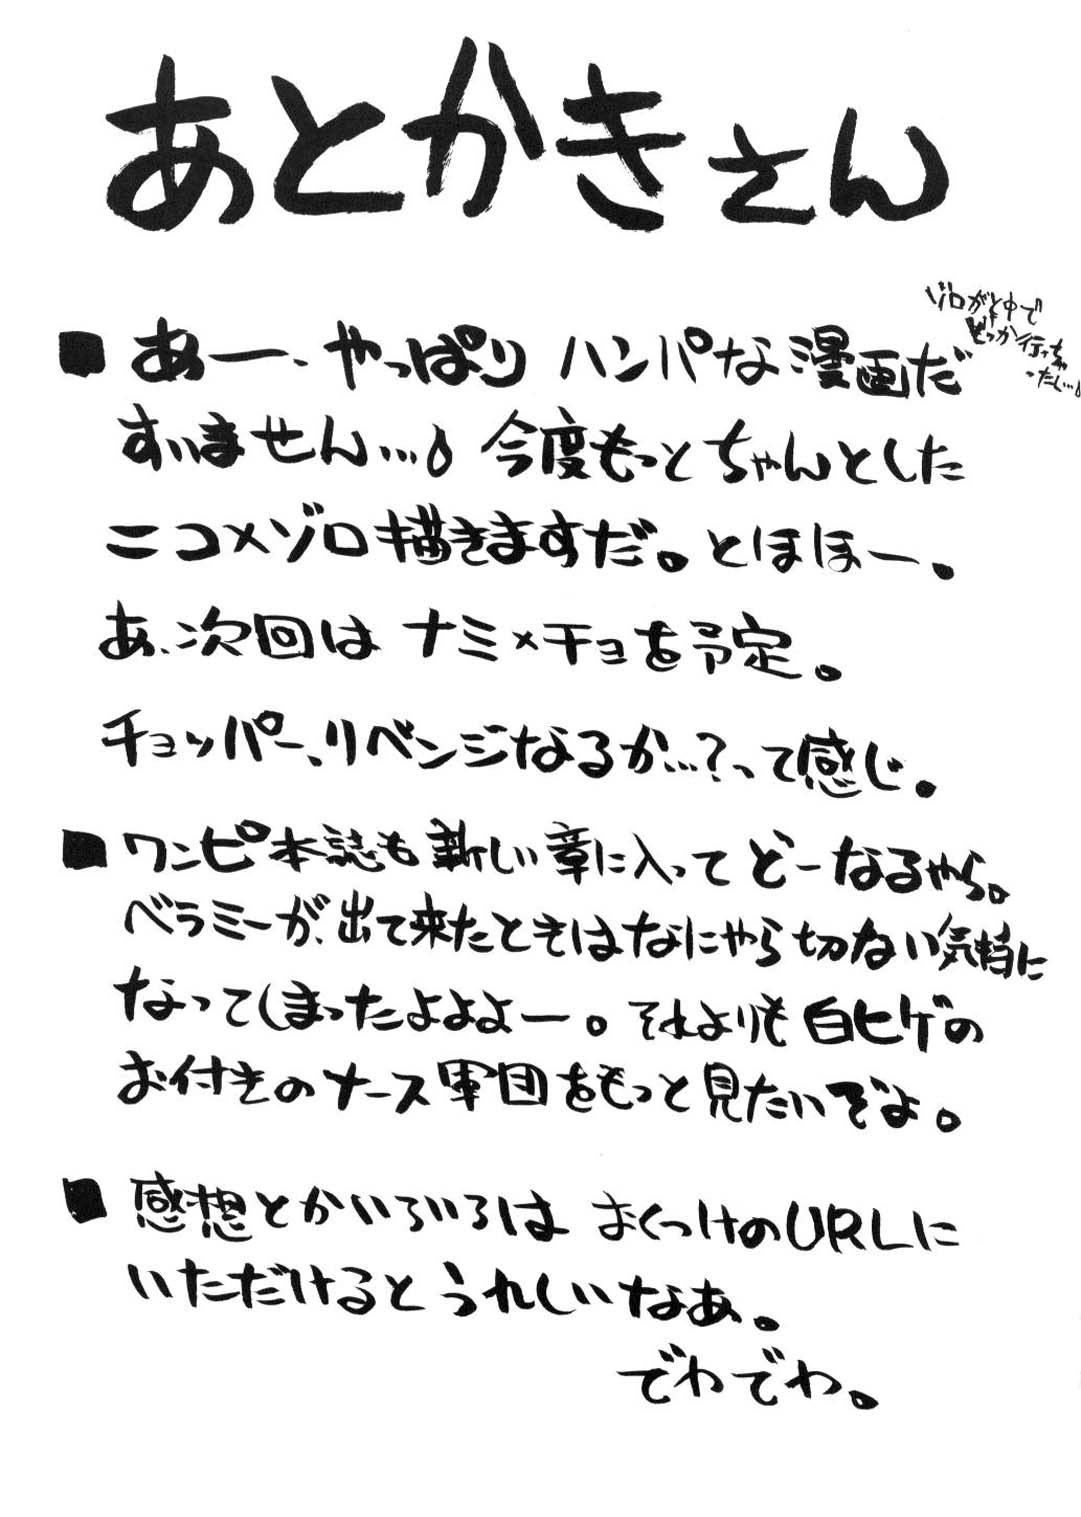 あとかきさん
ゾロが途中で
どっか行っちゃ
ったし…
■あー、やっぱり ハンパな漫画だ
すいません… 今度もっとちゃんとした
ニコ×ゾロ描きますだ。とほほー。
あ、次回は ナミ×チョを予定。
チョッパー、リベンジなるか…?って感じ。
■ワンピ本誌も新しい章に入って どーなるやら。
ベラミーが、出て来たときはなにやら切ない気持に
なってしまったよよよー。それよりも白ヒゲの
お付きのナース軍団をもっと見たいぞよ。
■感想とかいろいろは おくつけのURLに
いただけるとうれしいなあ。
でわでわ。